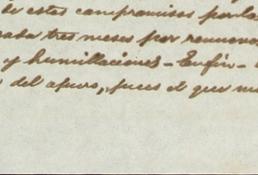 de estos compromisos por la
tres meses por renuevo
y humillaciones - En fin -
del apuro, pues el que me